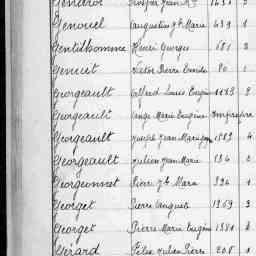 Genouel Augustin Jh Marie 439 1
Gentilhomme Henri Georges 681 2
Genuit Victor Pierre 80 1
Georgeault Alfred Louis Eugène 1173 2
Georgeault Ange Marie Eugène
Georgeault Joseph Jean Marie 1583 4
Georgeault Julien Jean Marie 136
Georgeonnet Pierre Jh Marie 396 1
Georget Pierre August 1969 3
Georget Pierre Marie Eugène
Gérard Félix Julien Pierre 208 1